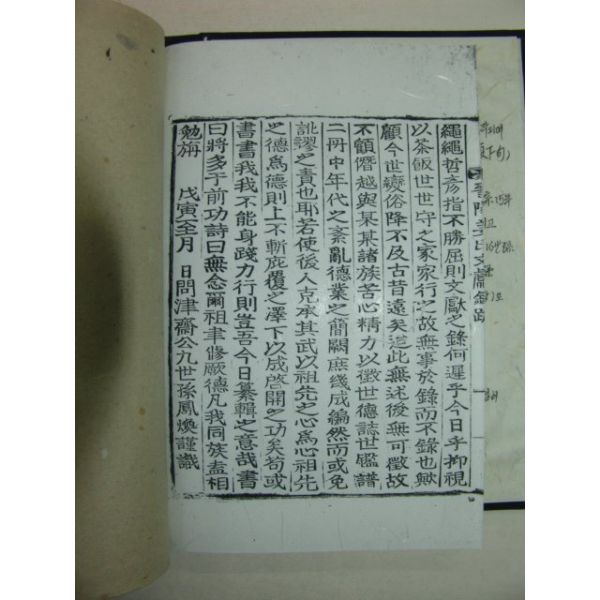 繩繩哲彦指不勝屈則文獻之錄何遲乎今日乎抑視
以茶飯世世守之家家行之故無事於錄而不錄也歟
顧今世級俗降不及古昔遠矣逭此無述後無可徵故
不顧僭越與某某諸族苦心精力以徵世德誌世鑑譜
二冊中年代之紊亂德業之簡闕庶幾成編然而或免
誂謬之責也耶若使後人克承其武以祖先之心爲心祖先
之德爲德則上不斬庇覆之澤下以成啓開之功矣苟或
書書我我不能身踐力行則豈吾今日纂輯之意哉書
曰將多于前功詩曰無念爾祖聿修厥德凡我同族盍相
勉旃 戊寅至月 日問津齋公九世孫鳳煥謹識